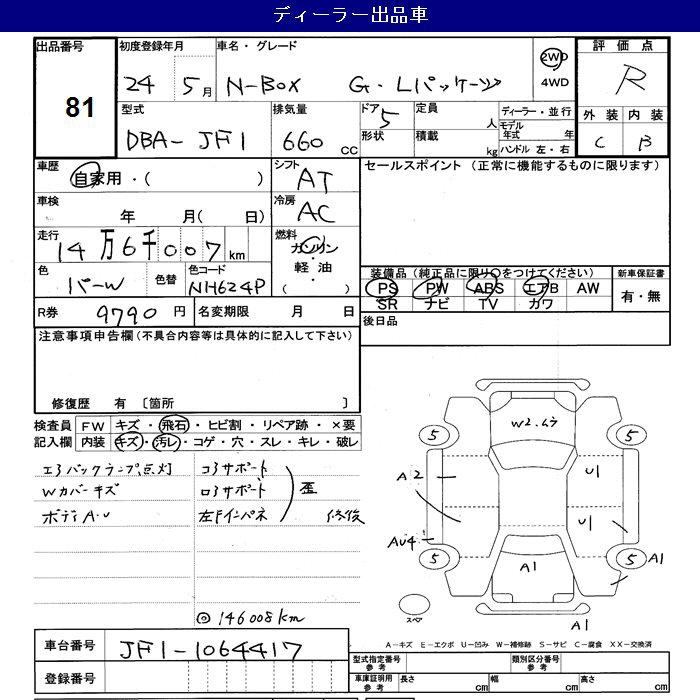 ディーラー出品車
出品番号 81
初度登録年月 24 5月
車名・グレード N-BOX G・Lパッケージ
2WD 4WD
評価点 R
外装 内装
C B
型式 DBA-JF1
排気量 660 CC
ドア 5
形状
定員 人
積載 kg
ディーラー・並行
モデル年式 年
ハンドル 左・右
車歴 自家用・( )
シフト AT
セールスポイント (正常に機能するものに限ります)
車検 年 月( 日)
冷房 AC
走行 14万6千007km
燃料 ガソリン・軽油・( )
色 パーW
色替
色コード NH624P
装備品(純正品に限り○をつけてください)
新車保証書
PS PW ABS エアB AW
有・無
SR ナビ TV カワ
R券 9790円
名変期限 月 日
後日品
注意事項申告欄(不具合内容等は具体的に記入して下さい)
修復歴 有 〔箇所 〕
検査員記入欄
FW キズ・飛石・ヒビ割・リペア跡・×要
内装 キズ・汚レ・コゲ・穴・スレ・キレ・破レ
エアバックランプ点灯
Wカバーキズ
ボディA・U
コアサポート
ロアサポート
左Fインパネ
歪
修後
◎146008km
5
W2.
5
A2
U1
AU4
U1
5
A1
5
A1
スペア
A1
A-キズ E-エクボ U-凹み W-補修跡 S-サビ C-腐食 XX-交換済
車台番号 JF1-1064417
登録番号
型式指定番号 参考
類別区分番号 参考
車庫証明用 参考
長さ cm
幅 cm
高さ cm